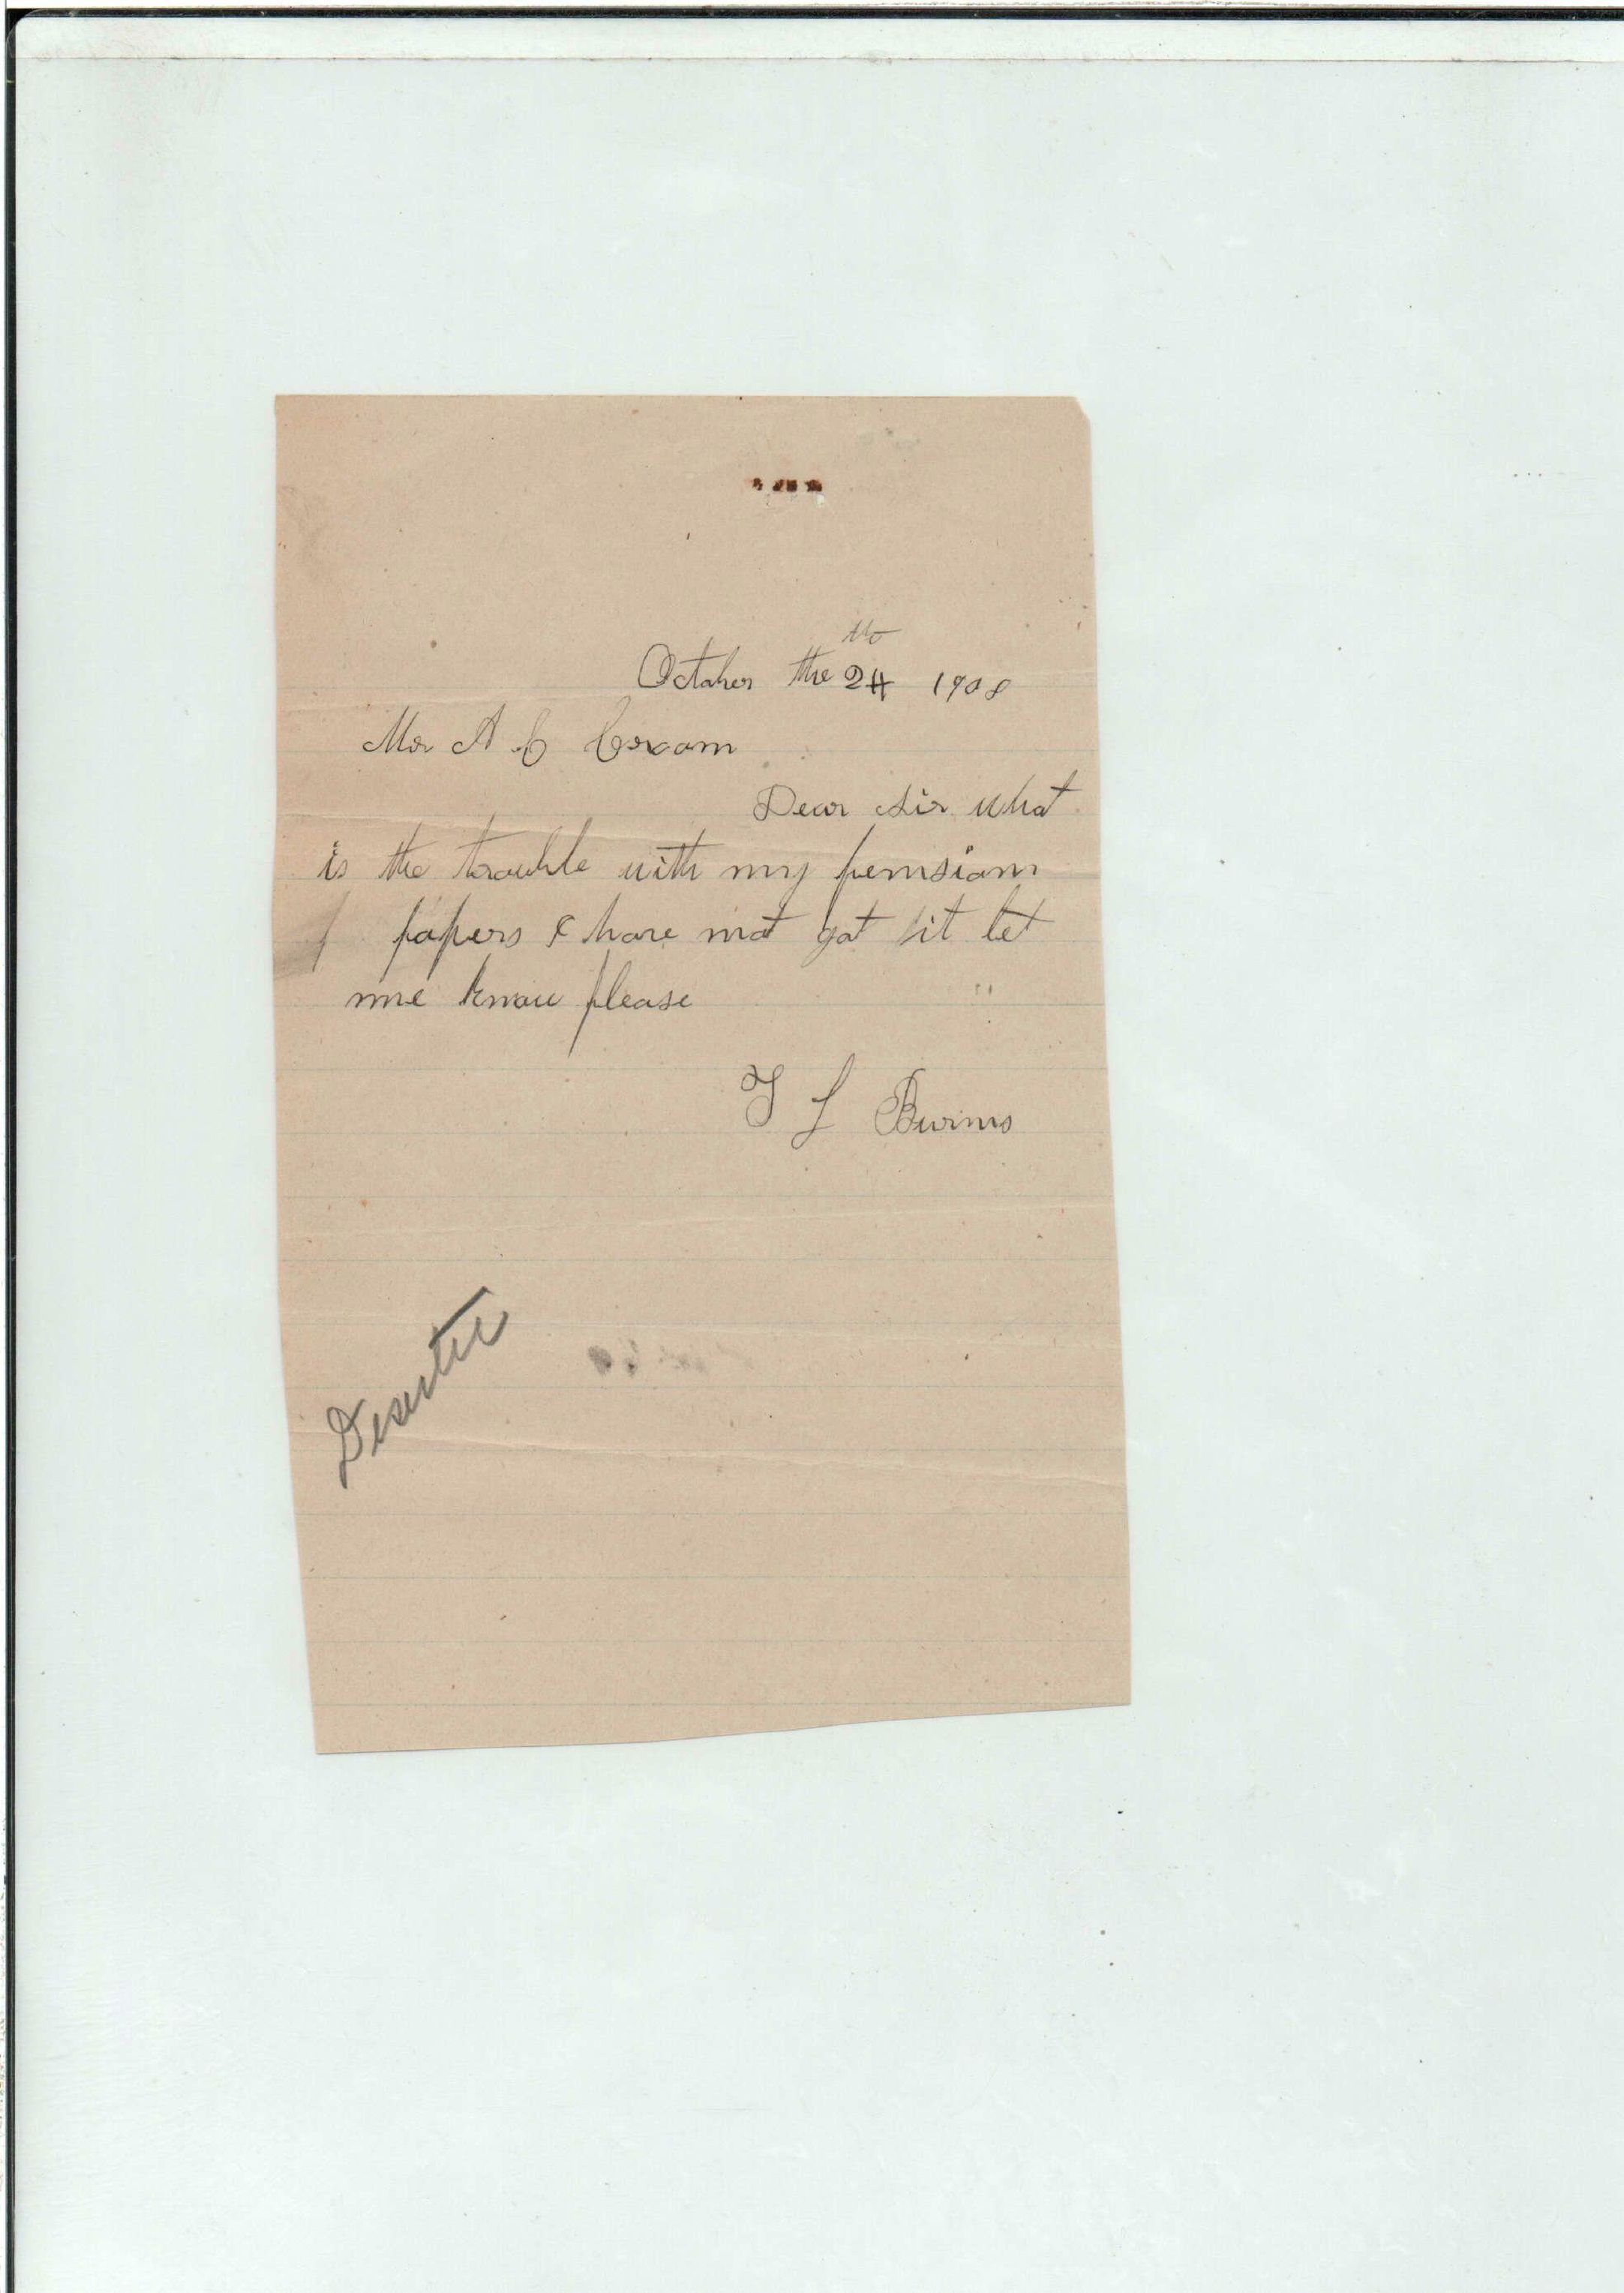 October the 24th 1908
Mr A C Croom
Dear Sir what
is the trouble with my pension
papers I have not got it let
me know please
T L Burns
Deserter